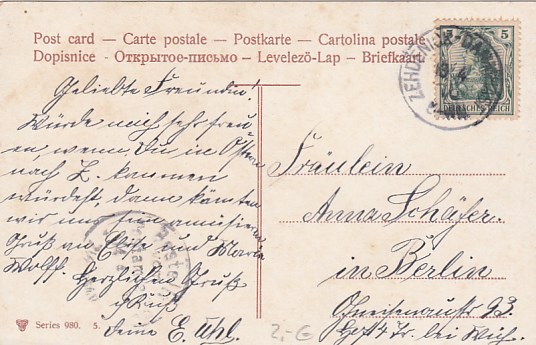 Post card — Carte postale — Postkarte — Cartolina postale
Dopisnice - Открытое-письмо – Levelező-Lap – Briefkaart
5
DEUTSCHES REICH
ZEHDENICK-DAM
BAHN
Geliebte Freundin!
Würde mich sehr freu-
en, wenn Du in Ostern
nach Z. kommen
würdest, dann könnten
wir uns fein amüsieren
Gruß an Elise und Marie
Wolff. Herzlichen Gruß
u Kuß
Deine E. Uhl.
Fräulein
Anna Schäfer.
in Berlin
Gneisenaustr. 93.
bei
Series 980. 5.
2,- €